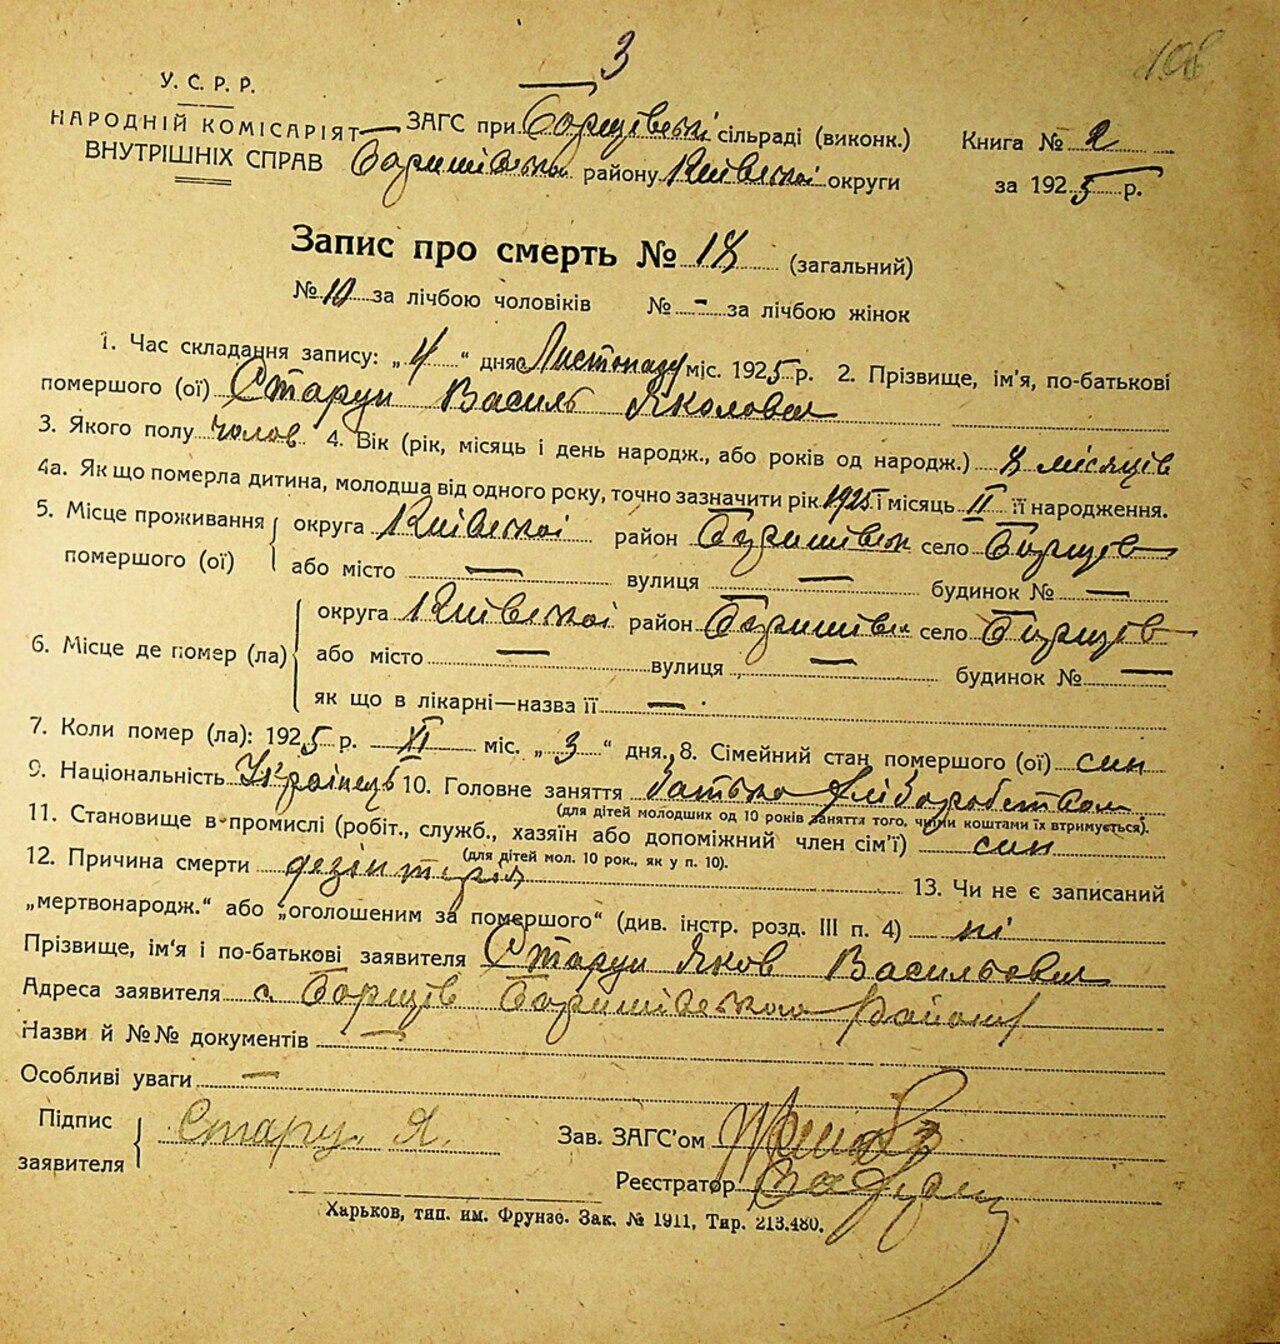 3
108
У. С. Р. Р.
НАРОДНІЙ КОМІСАРІЯТ
ВНУТРІШНІХ СПРАВ
ЗАГС при Борщівські сільраді (виконк.)
Баришівськом району Київської округи
Книга № 2
за 1925 р.
Запис про смерть № 18 (загальний)
№ 10 за лічбою чоловіків № - за лічбою жінок
1. Час складання запису: „4“ дня Листопаду міс. 1925 р. 2. Прізвище, ім'я, по-батькові
помершого (ої) Старун Василь Яколович
3. Якого полу чолов 4. Вік (рік, місяць і день народж., або років од народж.) 8 місяців
4а. Як що померла дитина, молодша від одного року, точно зазначити рік 1925 і місяць II її народження.
5. Місце проживання помершого (ої) округа Київської район Баришівськ село Борщів
або місто — вулиця — будинок № —
6. Місце де помер (ла) округа Київської район Баришівськ село Борщів
або місто — вулиця — будинок № —
як що в лікарні—назва її —
7. Коли помер (ла): 1925 р. XI міс. „3“ дня. 8. Сімейний стан помершого (ої) син
9. Національність Українець 10. Головне заняття батько хліборобством
(для дітей молодших од 10 років заняття того, чиїми коштами їх втримується).
11. Становище в промислі (робіт., служб., хазяїн або допоміжний член сім'ї) син
(для дітей мол. 10 рок., як у п. 10).
12. Причина смерти дезінтерія 13. Чи не є записаний
„мертвонародж.“ або „оголошеним за помершого“ (див. інстр. розд. III п. 4) ні
Прізвище, ім'я і по-батькові заявителя Старун Яков Васильович
Адреса заявителя с. Борщів Баришівського Району
Назви й №№ документів —
Особливі уваги —
Підпис заявителя Стару. Я.
Зав. ЗАГС'ом
Реєстратор
Харьков, тип. им. Фрунзе. Зак. № 1911, Тир. 213.480.